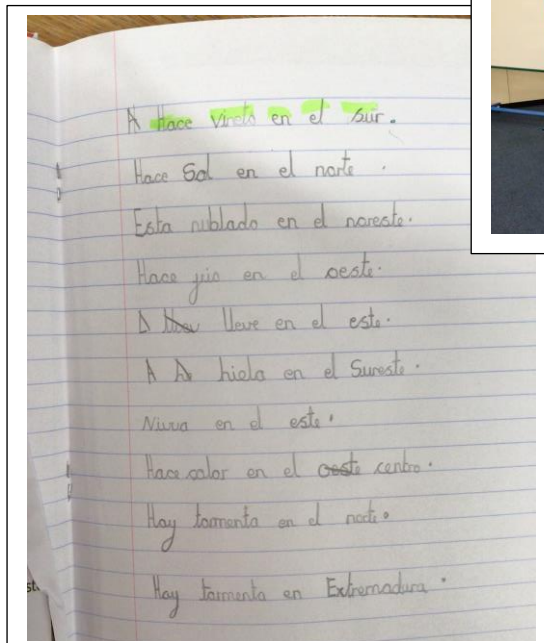 A Hace Vineto en el Sur.
Hace Sol en el norte.
Esta nublado en el noreste.
Hace jrio en el oeste.
lleve en el este.
A A hiela en el Sureste.
Nivva en el este.
Hace calor en el oeste centro.
Hay tormenta en el norte.
Hay tormenta en Extremadura.
st